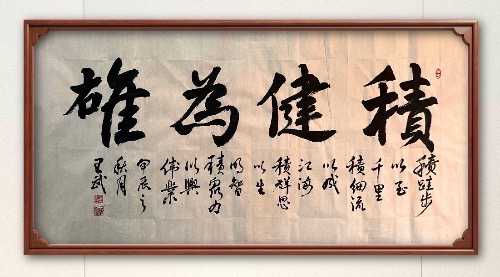 積健為雄
積跬步
以至
千里
積細流
以成
江海
積群思
以生
明智
積眾力
以興
偉業
甲辰之
秋月
王斌